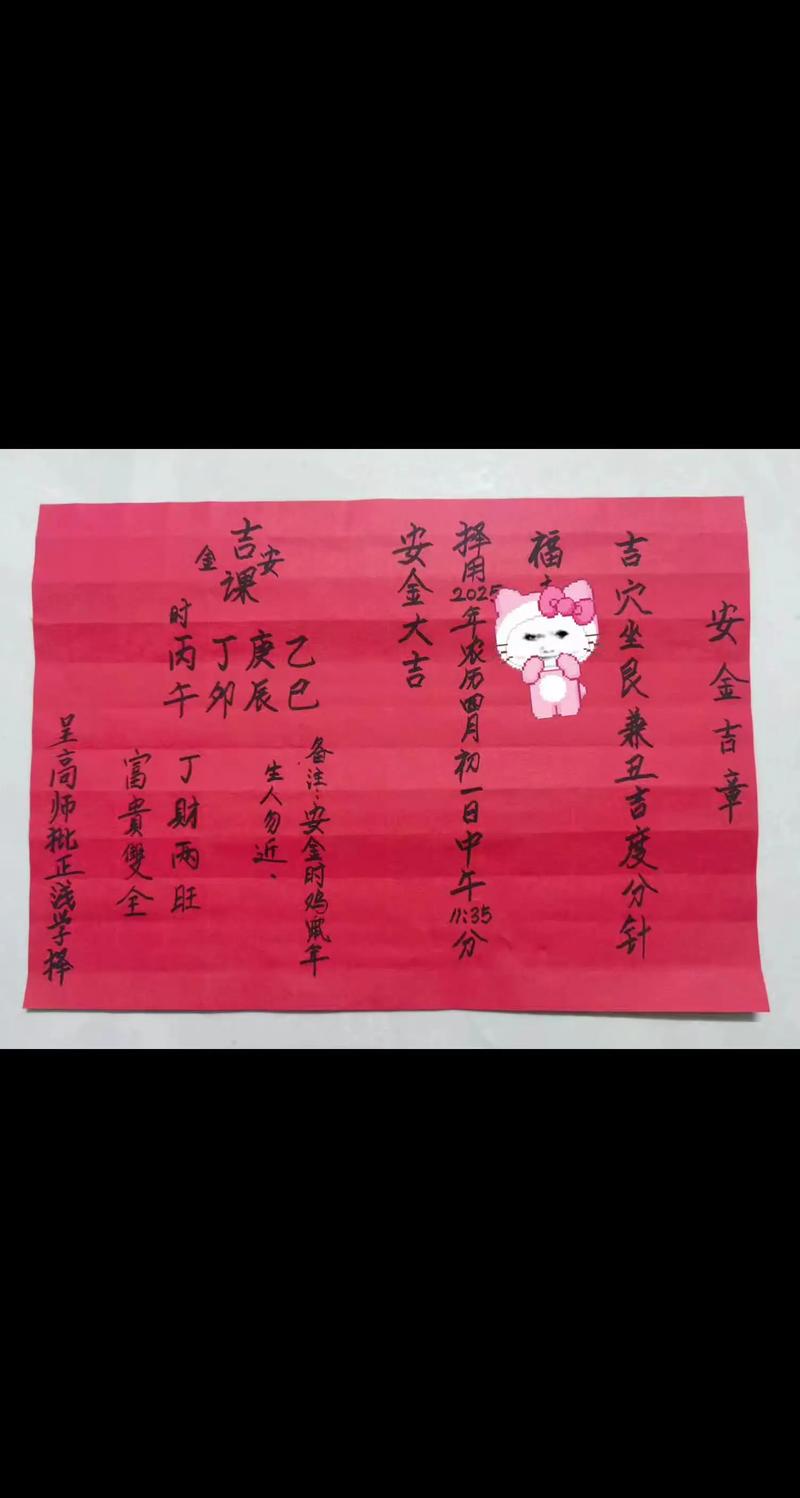 安金吉章
吉穴坐艮兼丑吉度分针
福
择用2025年农历四月初一日中午11:35分
安金大吉
安金吉课
乙巳
庚辰
丁卯
时丙午
备注:安金时鸡鼠年
生人勿近.
丁財两旺
富貴雙全
呈高师批正浅学择